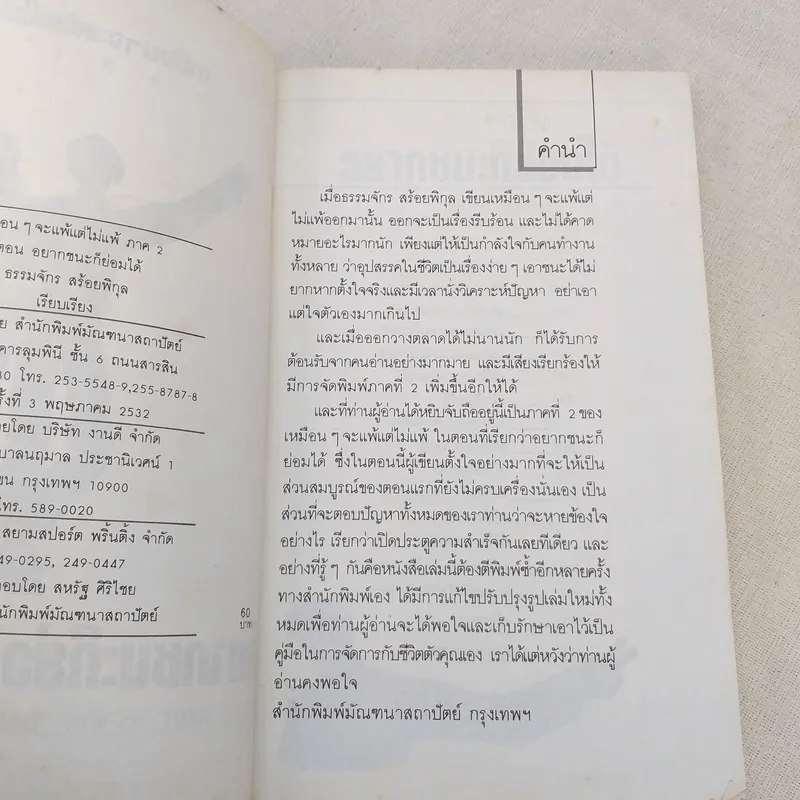 อน ๆ จะแพ้แต่ไม่แพ้ ภาค 2
ตอน อยากชนะก็ย่อมได้
ธรรมจักร สร้อยพิกุล
เรียบเรียง
ย สำนักพิมพ์มัณฑนาสถาปัตย์
คารลุมพินี ชั้น 6 ถนนสารสิน
30 โทร. 253-5548-9,255-8787-8
รั้งที่ 3 พฤษภาคม 2532
ยโดย บริษัท งานดี จำกัด
บาลนฤมาล ประชานิเวศน์ 1
ขน กรุงเทพฯ 10900
โทร. 589-0020
สยามสปอร์ต พริ้นติ้ง จำกัด
49-0295, 249-0447
อบโดย สหรัฐ ศิริไชย
นักพิมพ์มัณฑนาสถาปัตย์
60
บาท
คำนำ
เมื่อธรรมจักร สร้อยพิกุล เขียนเหมือน ๆ จะแพ้แต่
ไม่แพ้ออกมานั้น ออกจะเป็นเรื่องรีบร้อน และไม่ได้คาด
หมายอะไรมากนัก เพียงแต่ให้เป็นกำลังใจกับคนทำงาน
ทั้งหลาย ว่าอุปสรรคในชีวิตเป็นเรื่องง่าย ๆ เอาชนะได้ไม่
ยากหากตั้งใจจริงและมีเวลานั่งวิเคราะห์ปัญหา อย่าเอา
แต่ใจตัวเองมากเกินไป
และเมื่อออกวางตลาดได้ไม่นานนัก ก็ได้รับการ
ต้อนรับจากคนอ่านอย่างมากมาย และมีเสียงเรียกร้องให้
มีการจัดพิมพ์ภาคที่ 2 เพิ่มขึ้นอีกให้ได้
และที่ท่านผู้อ่านได้หยิบจับถืออยู่นี้เป็นภาคที่ 2 ของ
เหมือน ๆ จะแพ้แต่ไม่แพ้ ในตอนที่เรียกว่าอยากชนะก็
ย่อมได้ ซึ่งในตอนนี้ผู้เขียนตั้งใจอย่างมากที่จะให้เป็น
ส่วนสมบูรณ์ของตอนแรกที่ยังไม่ครบเครื่องนั่นเอง เป็น
ส่วนที่จะตอบปัญหาทั้งหมดของเราท่านว่าจะหายข้องใจ
อย่างไร เรียกว่าเปิดประตูความสำเร็จกันเลยทีเดียว และ
อย่างที่รู้ ๆ กันคือหนังสือเล่มนี้ต้องตีพิมพ์ซ้ำอีกหลายครั้ง
ทางสำนักพิมพ์เอง ได้มีการแก้ไขปรับปรุงรูปเล่มใหม่ทั้ง
หมดเพื่อท่านผู้อ่านจะได้พอใจและเก็บรักษาเอาไว้เป็น
คู่มือในการจัดการกับชีวิตตัวคุณเอง เราได้แต่หวังว่าท่านผู้
อ่านคงพอใจ
สำนักพิมพ์มัณฑนาสถาปัตย์ กรุงเทพฯ